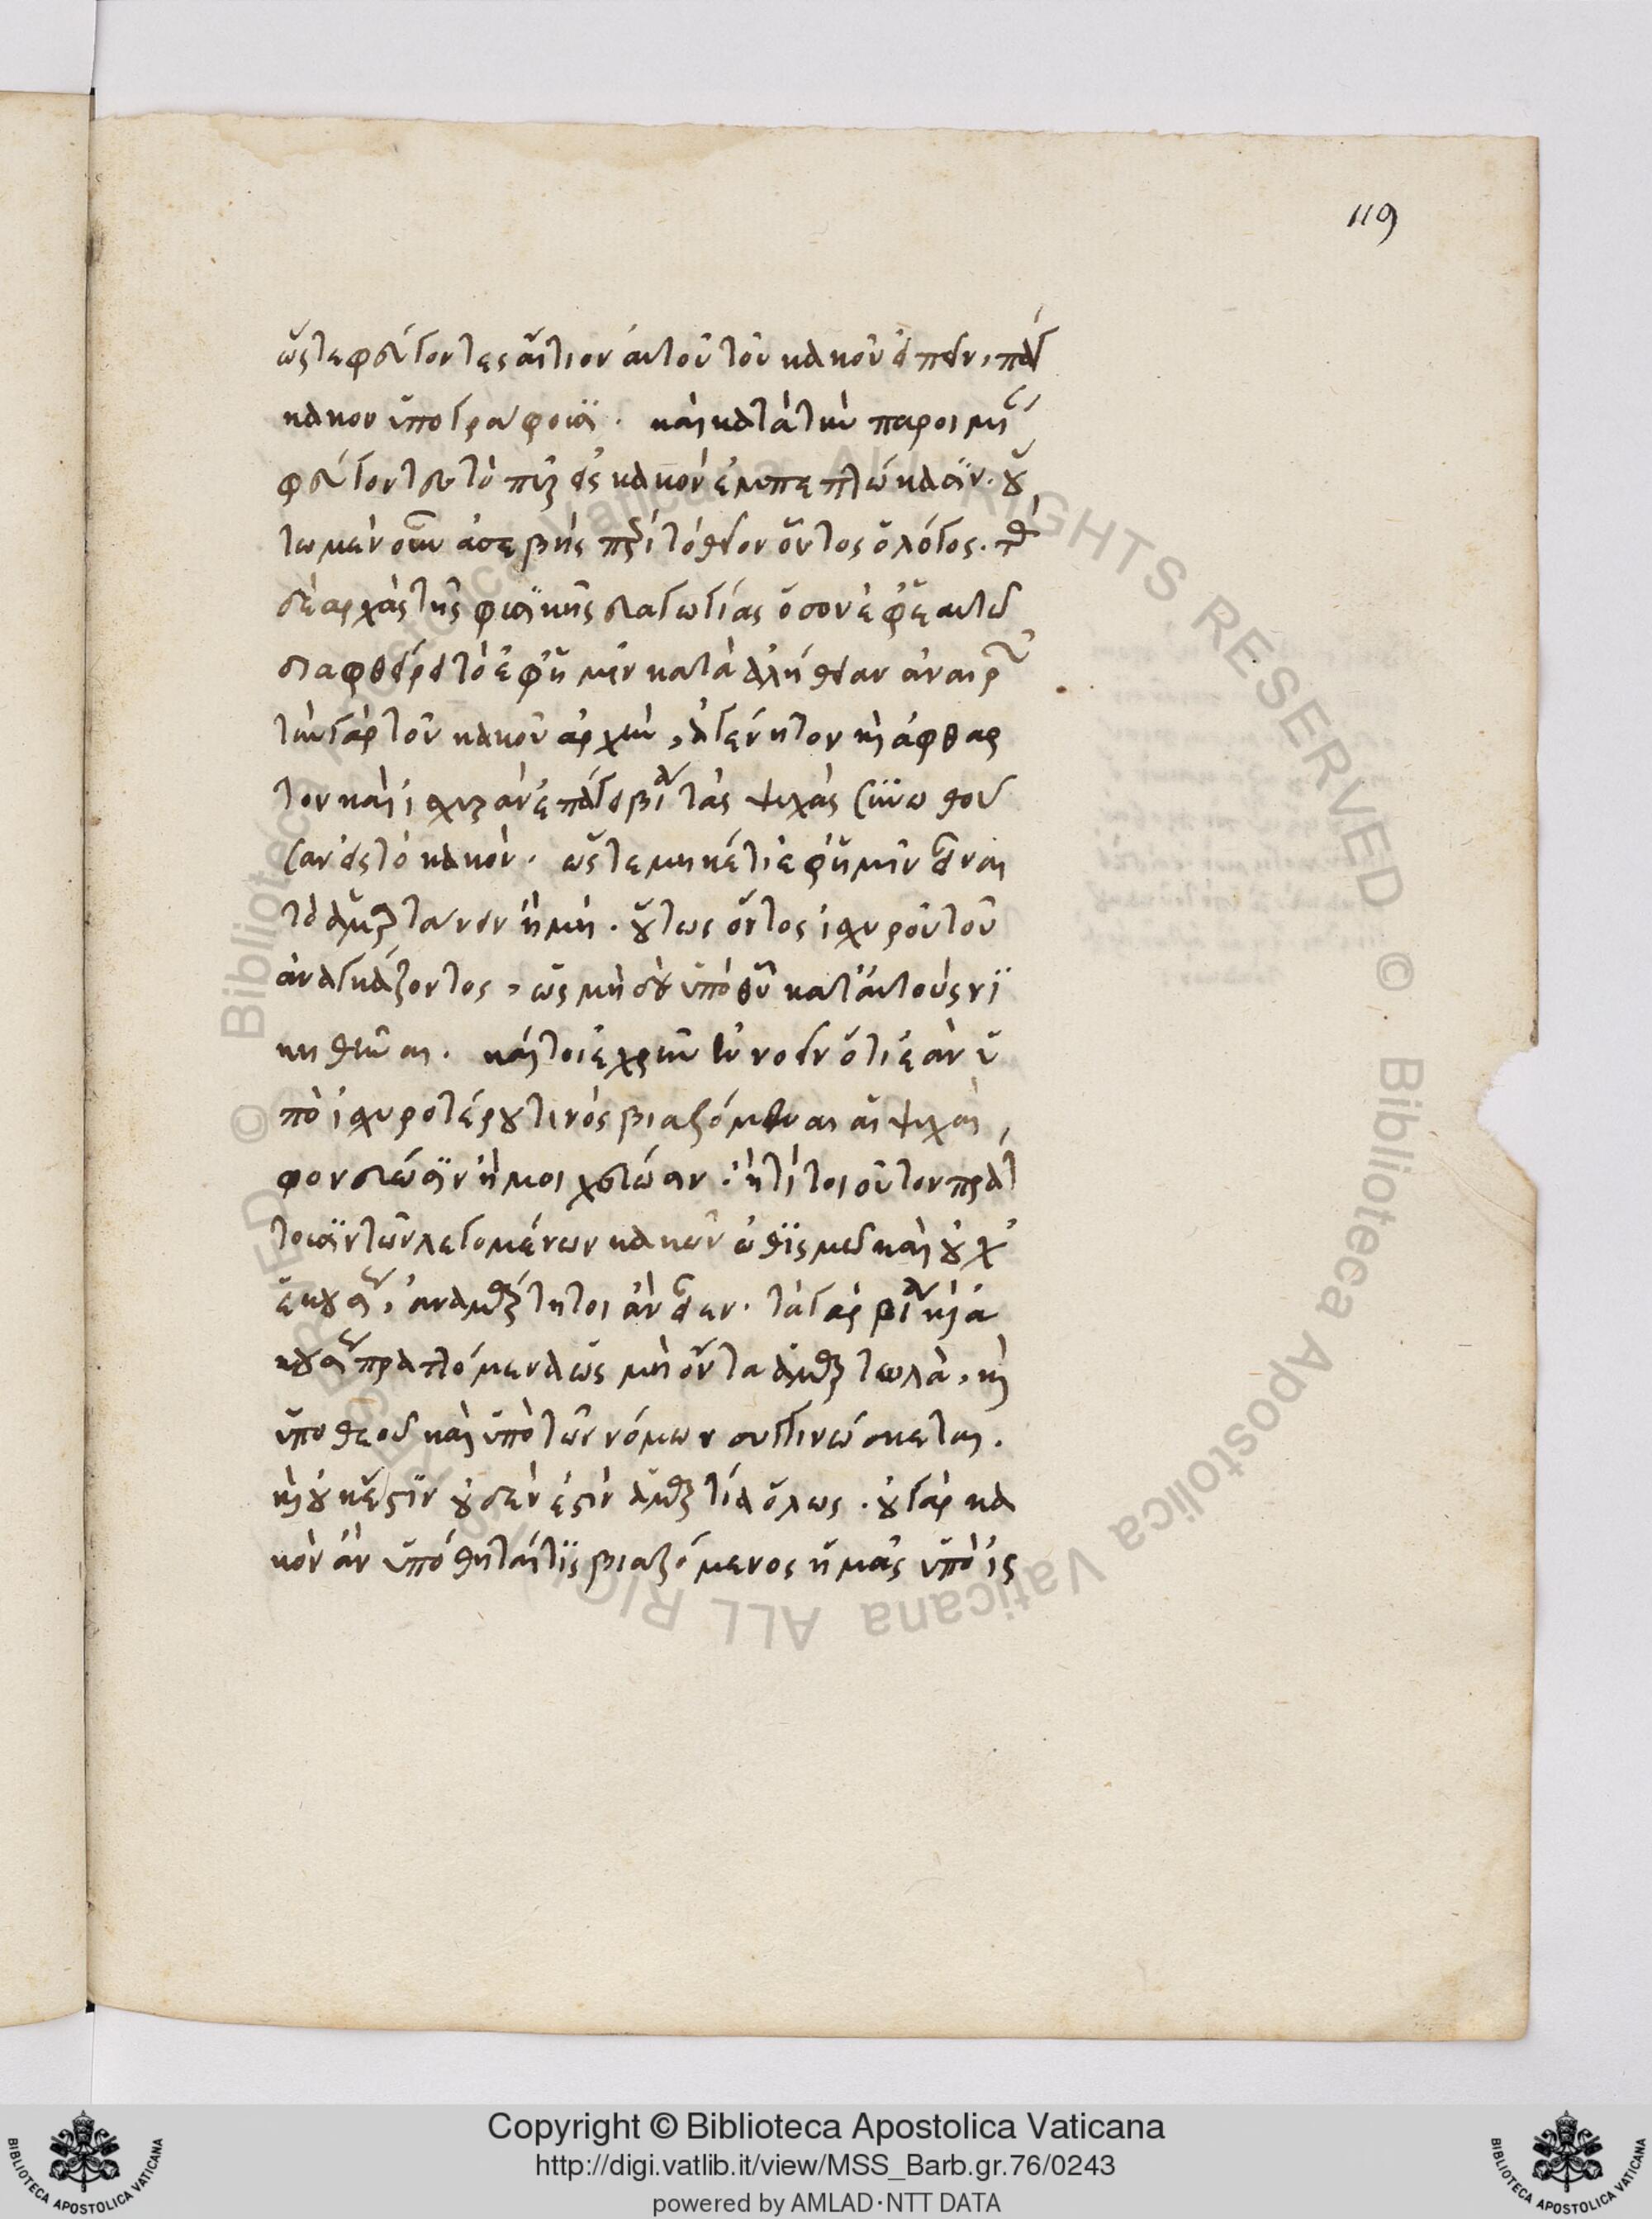 119
ὥστε φεύγοντες αἴτιον αὐτοῦ τοῦ κακοῦ εἰπεῖν, πάγ
κακον ὑπογράφουσι. καὶ κατὰ τὴν παροιμί
φεύγοντες τὸ πῦρ εἰς κακὸν ἐμπεπτώκασιν. οὕ
τω μὲν οὖν ἀσεβὴς περὶ τὸ θεῖον οὗτος ὁ λόγος. τὰς
δὲ ἀρχὰς τῆς φυσικῆς διαγωγίας ὅσον ἐφ' ἑαυτῷ
διαφθείρει τὸ ἐφ' ἡμῖν κατὰ ἀλήθειαν ἀναιρῶν
τὴν γὰρ τοῦ κακοῦ ἀρχὴν, ἀγένητον καὶ ἄφθαρ
τον καὶ ἰσχυρὰν ἐπάγει βίαν τὰς ψυχὰς συνωθοῦ
σαν εἰς τὸ κακόν. ὥστε μηκέτι ἐφ' ἡμῖν εἶναι
τὸ ἁμαρτάνειν ἢ μή. οὕτως ὄντος ἰσχυροῦ τοῦ
ἀναγκάζοντος, ὡς μηδ' ὑπὸ θεοῦ κατ' αὐτοὺς νι
κηθῆναι. καίτοι ἐχρῆν ἐννοεῖν ὅτι ἐὰν ὑ
πὸ ἰσχυροτέρου τινὸς βιαζόμεναι αἱ ψυχαὶ,
φονεύωσιν ἢ μοιχεύωσιν. ἤ τι τοιοῦτον πράτ
τουσιν τῶν λεγομένων κακῶν ὠθισμῷ καὶ οὐχ
ἑκοῦσαι, ἀναμάρτητοι ἂν εἶεν. τὰ γὰρ βίᾳ καὶ ἀ
κουσίως πραττόμενα ὡς μὴ ὄντα ἁμαρτωλὰ, καὶ
ὑπὸ θεοῦ καὶ ὑπὸ τῶν νόμων συγγινώσκεται.
καὶ οὐκ ἔστιν οὐδὲν ἐστὶν ἁμαρτία ὅλως. οὐ γὰρ κα
κὸν ἂν ὑπόθηταί τις βιαζόμενος ἡμᾶς ὑπὸ ἰσ
Copyright © Biblioteca Apostolica Vaticana
http://digi.vatlib.it/view/MSS_Barb.gr.76/0243
powered by AMLAD·NTT DATA